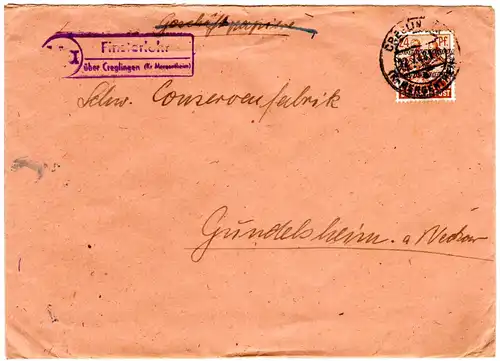 Geschäftspapiere
Finsterlohr
über Creglingen (Kr Mergentheim)
Schw. Conservenfabrik
Gundelsheim. a Neckar